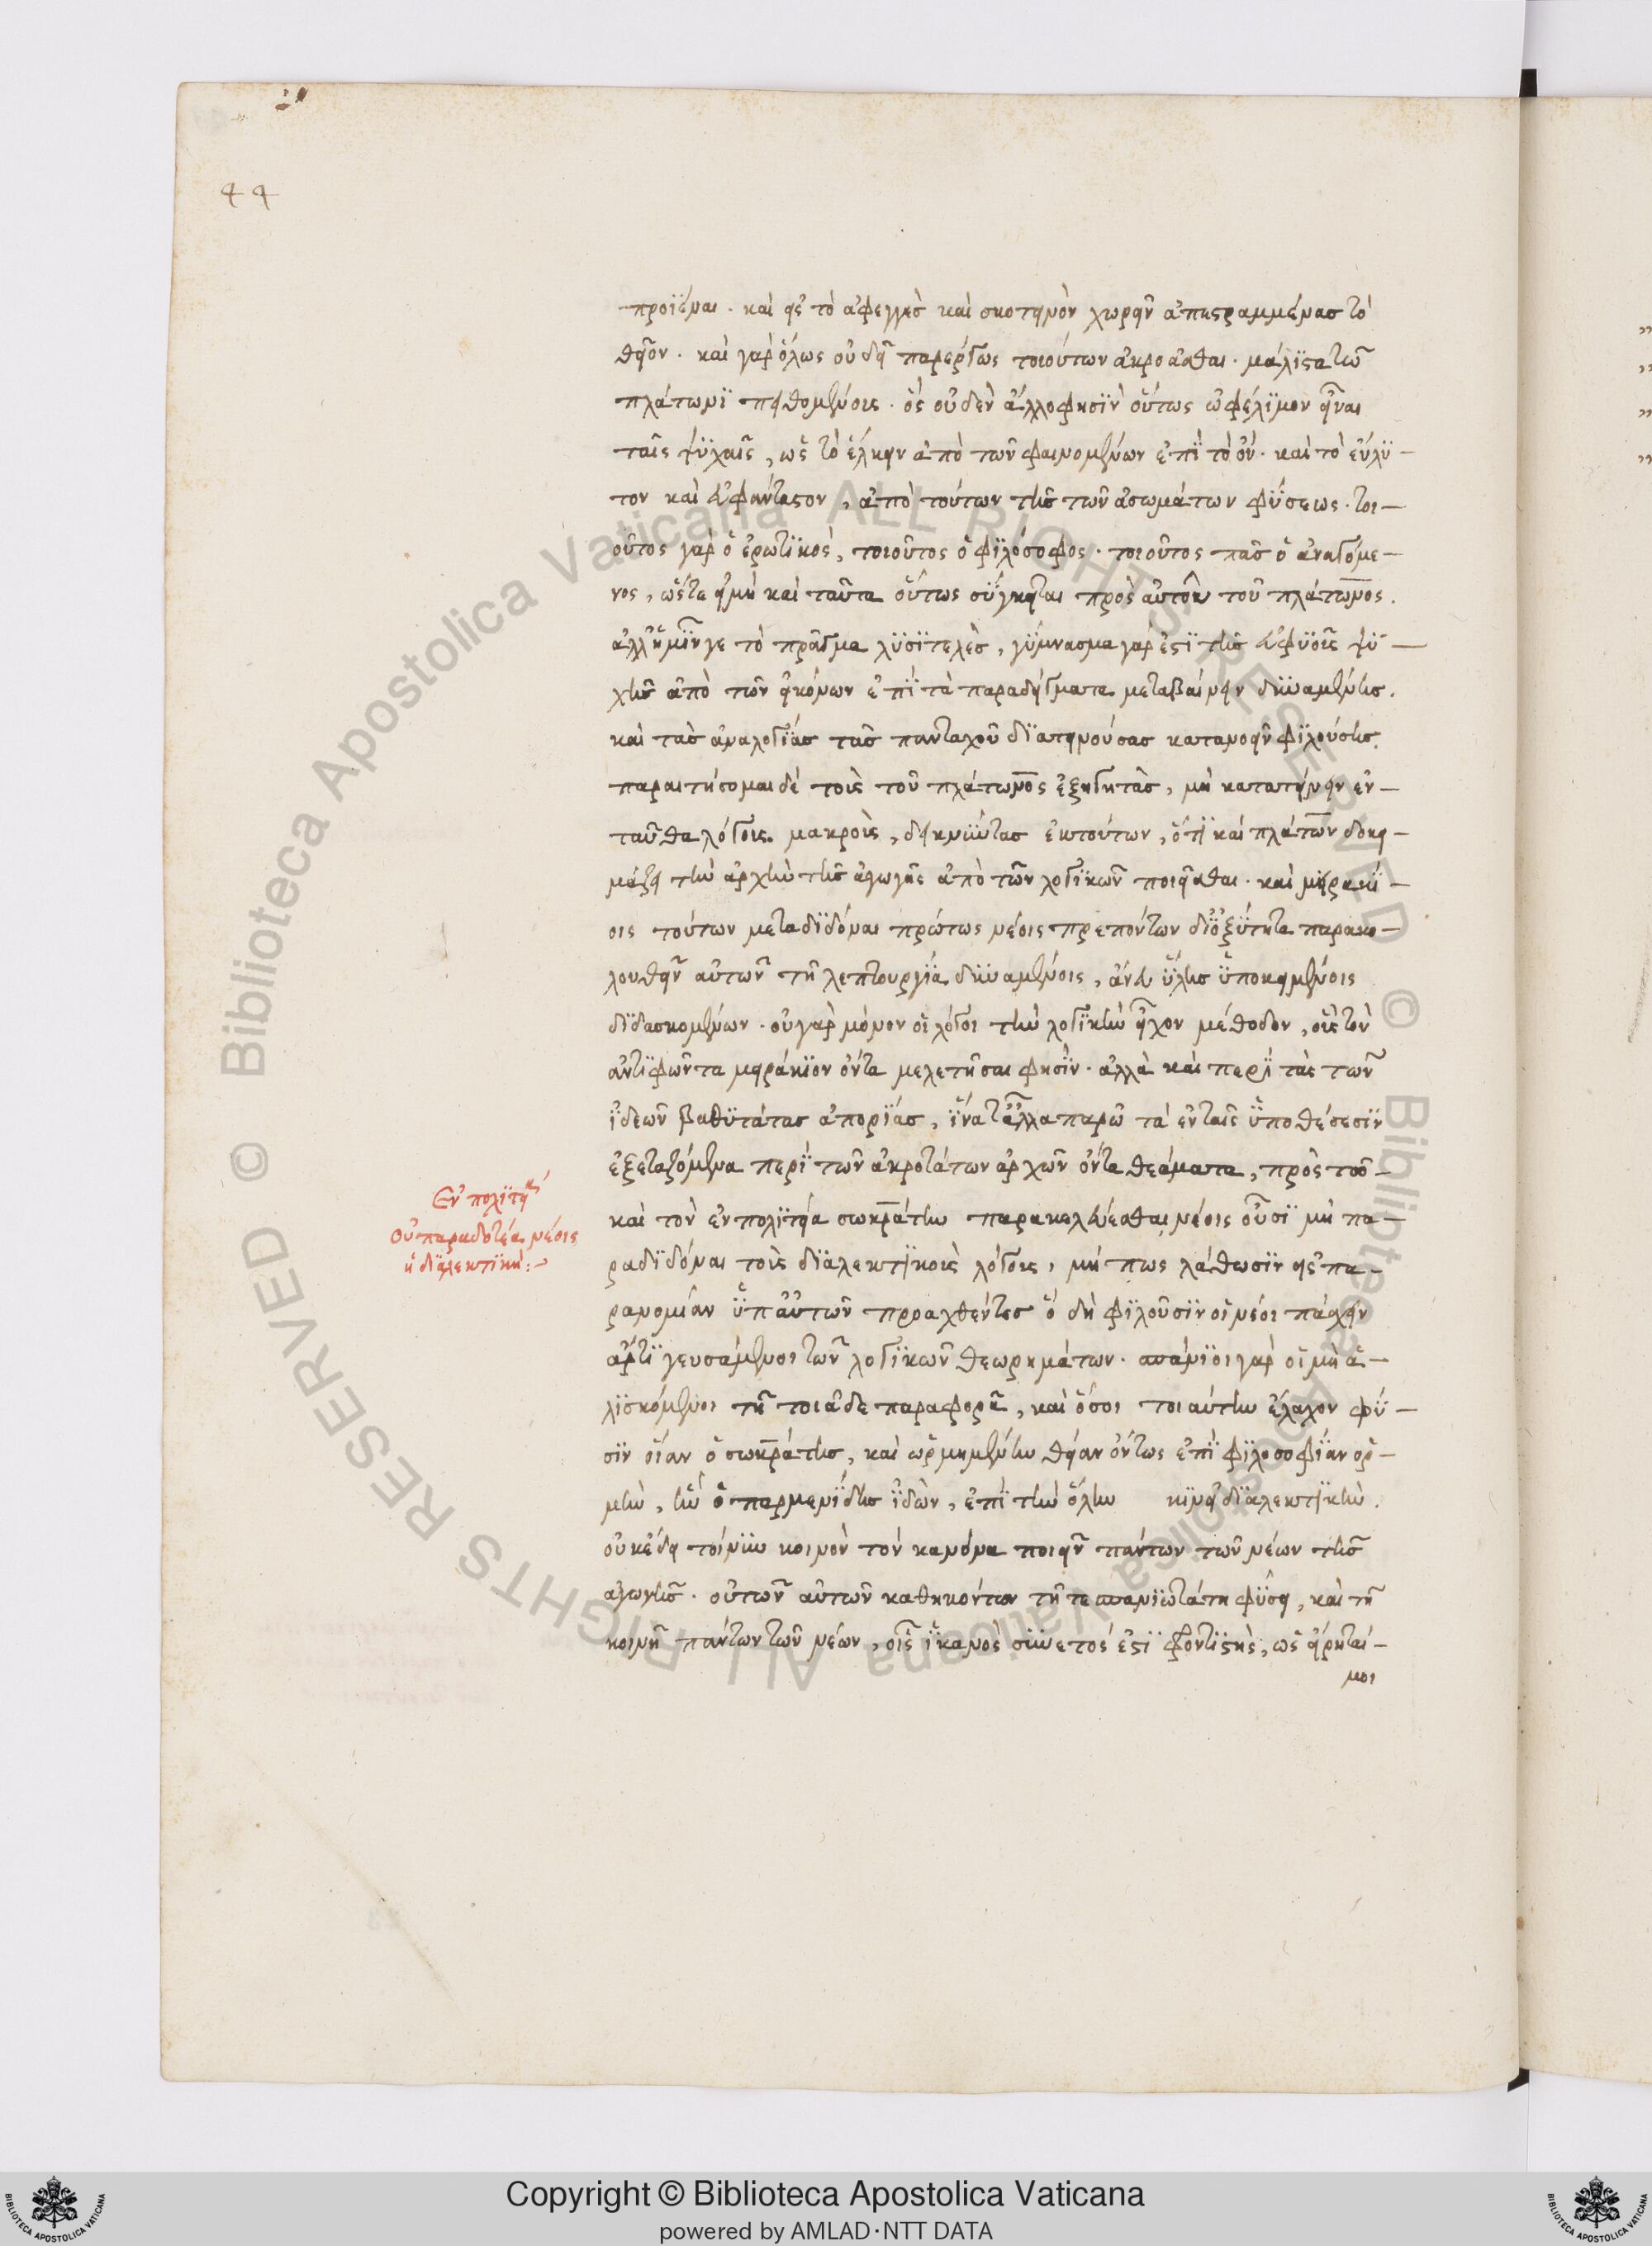 44
προϊέναι. καὶ εἰς τὸ ἀφεγγὲς καὶ σκοτεινὸν χωρεῖν ἀπεστραμμένας τὸ
θεῖον. καὶ γὰρ ὅλως οὐ δεῖ παρέργως τοιούτων ἀκροᾶσθαι. μάλϊστα τῶ
πλάτωνϊ πειθομένοις. ὃς οὐδὲν ἄλλο φησϊν οὕτως ὠφέλϊμον εἶναι
ταῖς ψϋχαῖς, ὡς τὸ ἕλκειν ἀπὸ τῶν φαινομένων ἐπῒ τὸ ὄν. καὶ τὸ εὔλϋ-
τον καὶ εὐφάνταστον, ἀπὸ τούτων τῆς τῶν ἀσωμάτων φύσεως. τοι-
οῦτος γὰρ ὁ ἐρωτϊκὸς, τοιοῦτος ὁ φϊλόσοφος. τοιοῦτος πᾶς ὁ ἀναγόμε-
νος, ὥστε εἰ μὴ καὶ ταῦτα οὕτως σύγκειται πρὸς αὐτοῦ τοῦ πλάτωνος.
ἀλλ' ἡμῖν γε τὸ πρᾶγμα λϋσϊτελὲς, γύμνασμα γάρ ἐστϊ τῆς εὐφϋοῖς ψϋ-
χῆς ἀπὸ τῶν εἰκόνων ἐπῒ τὰ παραδείγματα μεταβαίνειν δϋναμένης.
καὶ τὰς ἀναλογΐας τὰς πανταχοῦ δϊατεινούσας κατανοεῖν φϊλούσης.
παραιτήσομαι δὲ τοὺς τοῦ πλάτωνος ἐξηγητὰς, μὴ κατατείνειν ἐν-
ταῦθα λόγοις μακροὺς, δεικνύντας ἐκ τούτων, ὅτϊ καὶ πλάτων δοκι-
μάζει τὴν ἀρχὴν τῆς ἀγωγῆς ἀπὸ τῶν λογϊκῶν ποιεῖσθαι. καὶ μειρακΐ-
οις τούτων μεταδϊδόναι πρώτως νέοις πρεπόντων δϊ' ὀξύτητα παρακο-
λουθεῖν αὐτῶν τῆ λεπτουργΐα δϋναμένοις, ἄνευ ὕλης ὑποκειμένοις
δϊδασκομένων. οὐ γὰρ μόνον οἱ λόγοι τὴν λογϊκὴν εἶχον μέθοδον, οὓς τὸν
ἀντϊφῶντα μειράκϊον ὄντα μελετῆσαι φησΐν. ἀλλὰ καὶ περῒ τὰς τῶν
ἰδεῶν βαθϋτάτας ἀπορΐας, ἵνα τἄλλα παρῶ τὰ ἐν ταῖς ὑποθέσεσϊν
ἐξεταζόμενα περῒ τῶν ἀκροτάτων ἀρχῶν ὄντα θεάματα, πρὸς τοῦ-
καὶ τὸν ἐν πολϊτεία σωκράτην παρακελεύεσθαι νέοις οὖσϊ μὴ πα-
ραδϊδόναι τοὺς δϊαλεκτϊκοὺς λόγους, μή πως λάθωσϊν εἰς πα-
ρανομίαν ὑπ' αὐτῶν προαχθέντες ὃ δὴ φϊλοῦσϊν οἱ νέοι πάσχειν
ἄρτϊ γευσάμενοι τῶν λογϊκῶν θεωρημάτων. σπάνϊοι γὰρ οἱ μὴ ἁ-
λϊσκόμενοι τῆ τοιᾶδε παραφορᾶ, καὶ ὅσοι τοιαύτην ἔλαχον φύ-
σϊν οἵαν ὁ σωκράτης, καὶ ὡρμημένην θείαν ὄντως ἐπῒ φϊλοσοφΐαν ὁρ-
μὴν, ἣν ὁ παρμενίδης ἰδὼν, ἐπῒ τὴν ὅλην κϊνεῖ δϊαλεκτϊκήν.
οὐκ ἔδει τοίνϋν κοινὸν τὸν κανόνα ποιεῖν πάντων τῶν νέων τῆς
ἀγωγῆς. οὐ τῶν αὐτῶν καθηκόντων τῆ τε σπανϊωτάτη φύσει, καὶ τῆ
κοινῆ πάντων τῶν νέων, οἷς ἱκανὸς σϋνετός ἐστϊ φροντϊστὴς, ὡς εἴρηταί-
μοι
Ἐν πολϊτεία
οὐ παραδοτέα νέοις
ἡ δϊαλεκτϊκή:
Copyright © Biblioteca Apostolica Vaticana
powered by AMLAD·NTT DATA